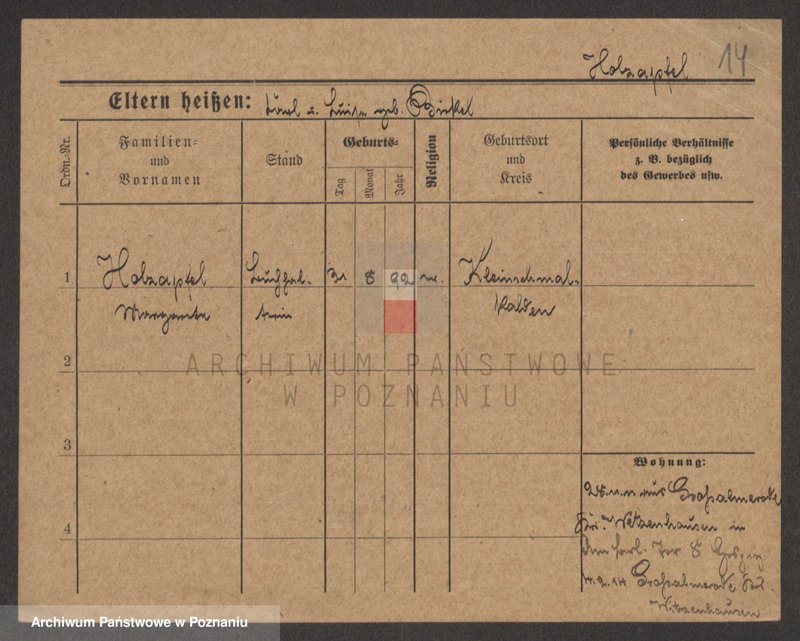 Holzapfel 14
Eltern heißen: Karl u. Luise geb. Birkel
Ordn.-Nr.
Familien-
und
Vornamen
Stand
Geburts-
Tag
Monat
Jahr
Religion
Geburtsort
und
Kreis
Persönliche Verhältnisse
z. B. bezüglich
des Gewerbes usw.
1 Holzapfel Buchhal- 31 8 92 Kleinschmal-
Margarete terin kalden
2
ARCHIWUM PAŃSTWOWE
W POZNANIU
3
Wohnung:
aus Großalmerode
Witzenhausen in
4
8
Großalmerode
Witzenhausen
Archiwum Państwowe w Poznaniu